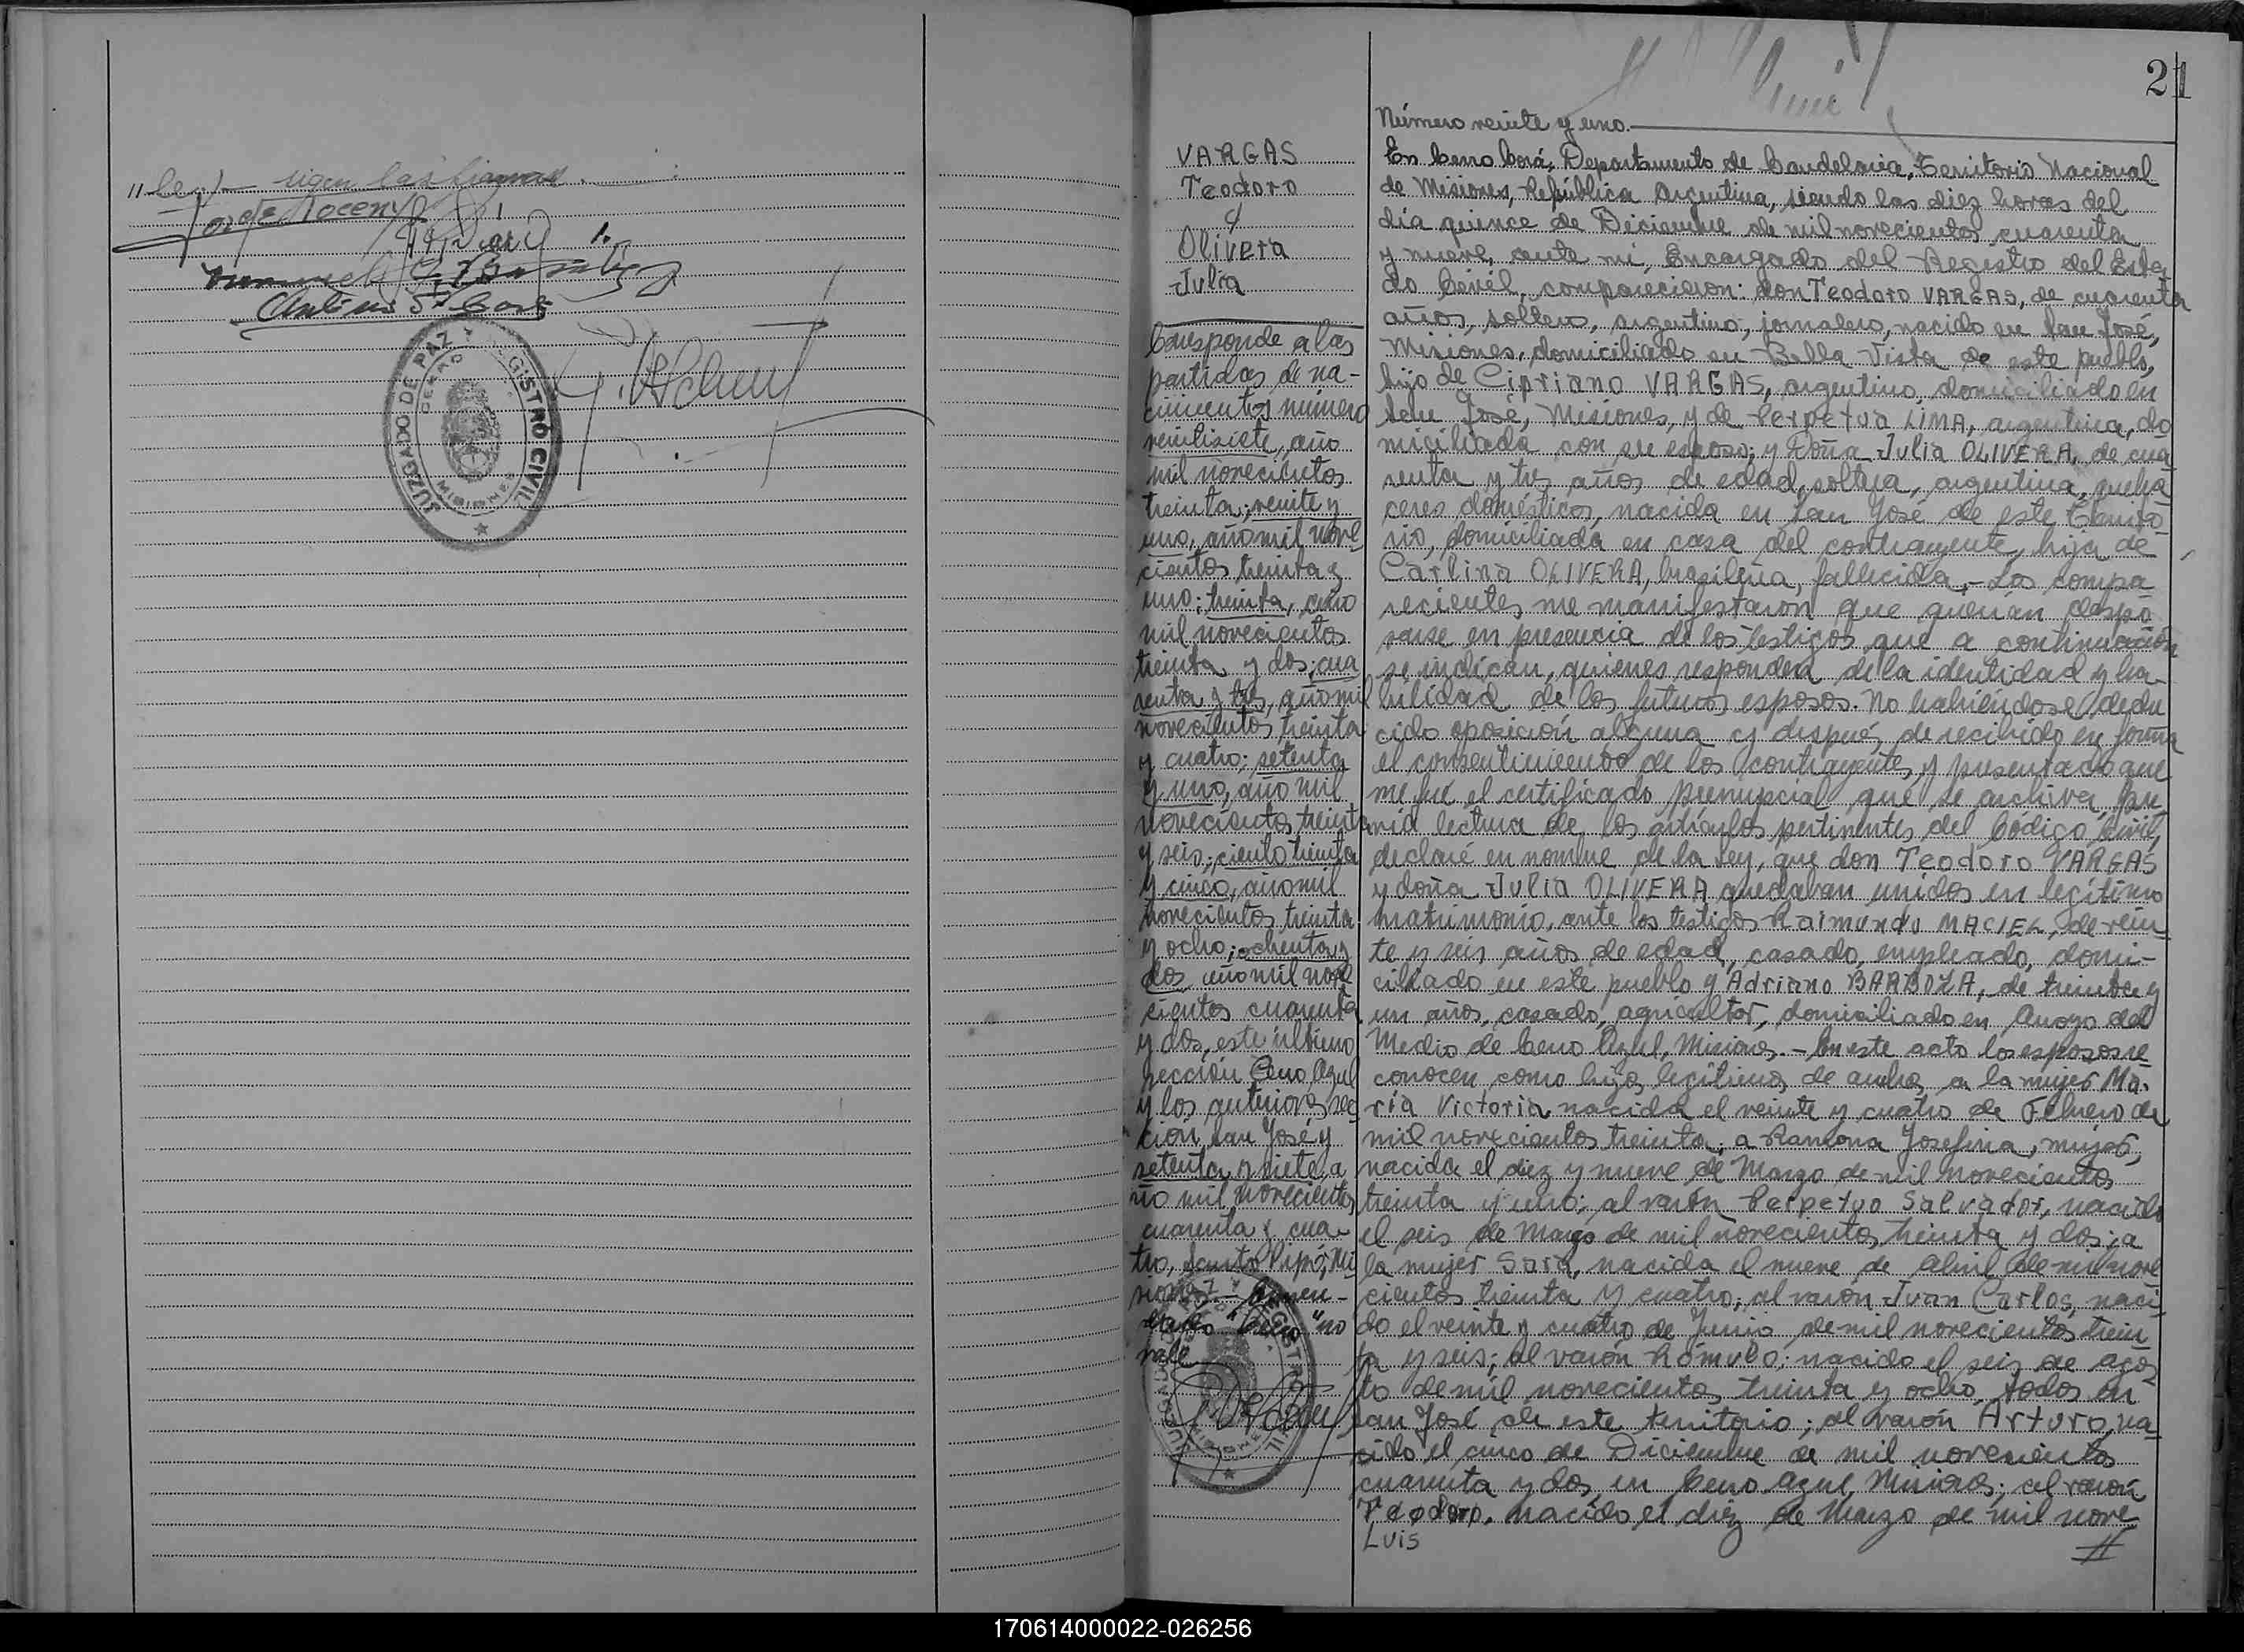 "ley/— siguen las firmas.
JUZGADO DE PAZ Y REGISTRO CIVIL
CERRO
MISIONES
21
Número veinte y uno.
VARGAS
Teodoro
y
Olivera
Julia
Corresponde a las
partidas de na-
cimientos número
veintisiete, año
mil novecientos
treinta; veinte y
uno, año mil nove
cientos treinta y
uno; treinta, año
mil novecientos
treinta y dos; cua
renta y tres, año mil
novecientos treinta
y cuatro; setenta
y uno, año mil
novecientos treinta
y seis; ciento treinta
y cinco, año mil
novecientos treinta
y ocho; ochenta y
dos, año mil nove
cientos cuarenta
y dos, este último
sección Cerro Azul
y los anteriores sec
ción San José y
setenta y siete, a
ño mil novecientos
cuarenta y cua
tro, Santo Pipó, Mi
siones.— Enmen-
dado "Cerro" no
vale
En Cerro Corá, Departamento de Candelaria, Territorio Nacional
de Misiones, República Argentina, siendo las diez horas del
día quince de Diciembre de mil novecientos cuarenta
y nueve, ante mi, Encargado del Registro del Esta
do Civil, comparecieron: don Teodoro VARGAS, de cuarenta
años, soltero, argentino, jornalero, nacido en San José,
Misiones, domiciliado en Bella Vista de este pueblo,
hijo de Cipriano VARGAS, argentino, domiciliado en
San José, Misiones, y de Perpetua LIMA, argentina, do
miciliada con su esposo; y Doña Julia OLIVERA, de cua
renta y tres años de edad, soltera, argentina, queha
ceres domésticos, nacida en San José de este Territo
rio, domiciliada en casa del contrayente, hija de
Carlina OLIVERA, brasileña, fallecida.- Los compa
recientes me manifestaron que querían despo
sarse en presencia de los testigos que a continuación
se indican, quienes responden de la identidad y ha-
bilidad de los futuros esposos. No habiéndose dedu
cido oposición alguna y después de recibido en forma
el consentimiento de los contrayentes y presentado que
me fué el certificado prenupcial que se archiva, pre
via lectura de los artículos pertinentes del Código Civil,
declaré en nombre de la Ley, que don Teodoro VARGAS
y doña Julia OLIVERA quedaban unidos en legítimo
matrimonio, ante los testigos Raimundo MACIEL, de vein
te y seis años de edad, casado, empleado, domi-
ciliado en este pueblo y Adriano BARBOZA, de treinta y
un años, casado, agricultor, domiciliado en Arroyo del
Medio de Cerro Azul, Misiones.- En este acto los esposos re
conocen como hijos legítimos de ambos a la mujer Ma-
ría Victoria, nacida el veinte y cuatro de Febrero de
mil novecientos treinta; a Ramona Josefina, mujer,
nacida el diez y nueve de Marzo de mil novecientos
treinta y uno; al varón Perpetuo Salvador, nacido
el seis de Marzo de mil novecientos treinta y dos; a
la mujer Sara, nacida el nueve de Abril de mil nove
cientos treinta y cuatro; al varón Juan Carlos, naci
do el veinte y cuatro de Junio de mil novecientos trein
ta y seis; al varón Rómulo, nacido el seis de agos
to de mil novecientos treinta y ocho, todos en
San José de este territorio; al varón Arturo, na
cido el cinco de Diciembre de mil novecientos
cuarenta y dos, en Cerro Azul, Misiones; al varón
Teodoro, nacido el diez de Marzo de mil nove
Luis
170614000022-026256